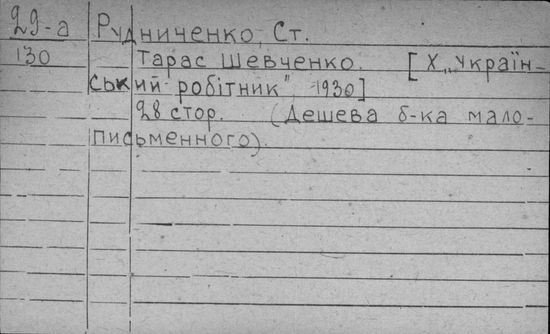 29-а Рудниченко, Ст.
130 Тарас Шевченко. [Х „Україн-
ський робітник" 1930]
28 стор. (Дешева б-ка мало-
письменного).